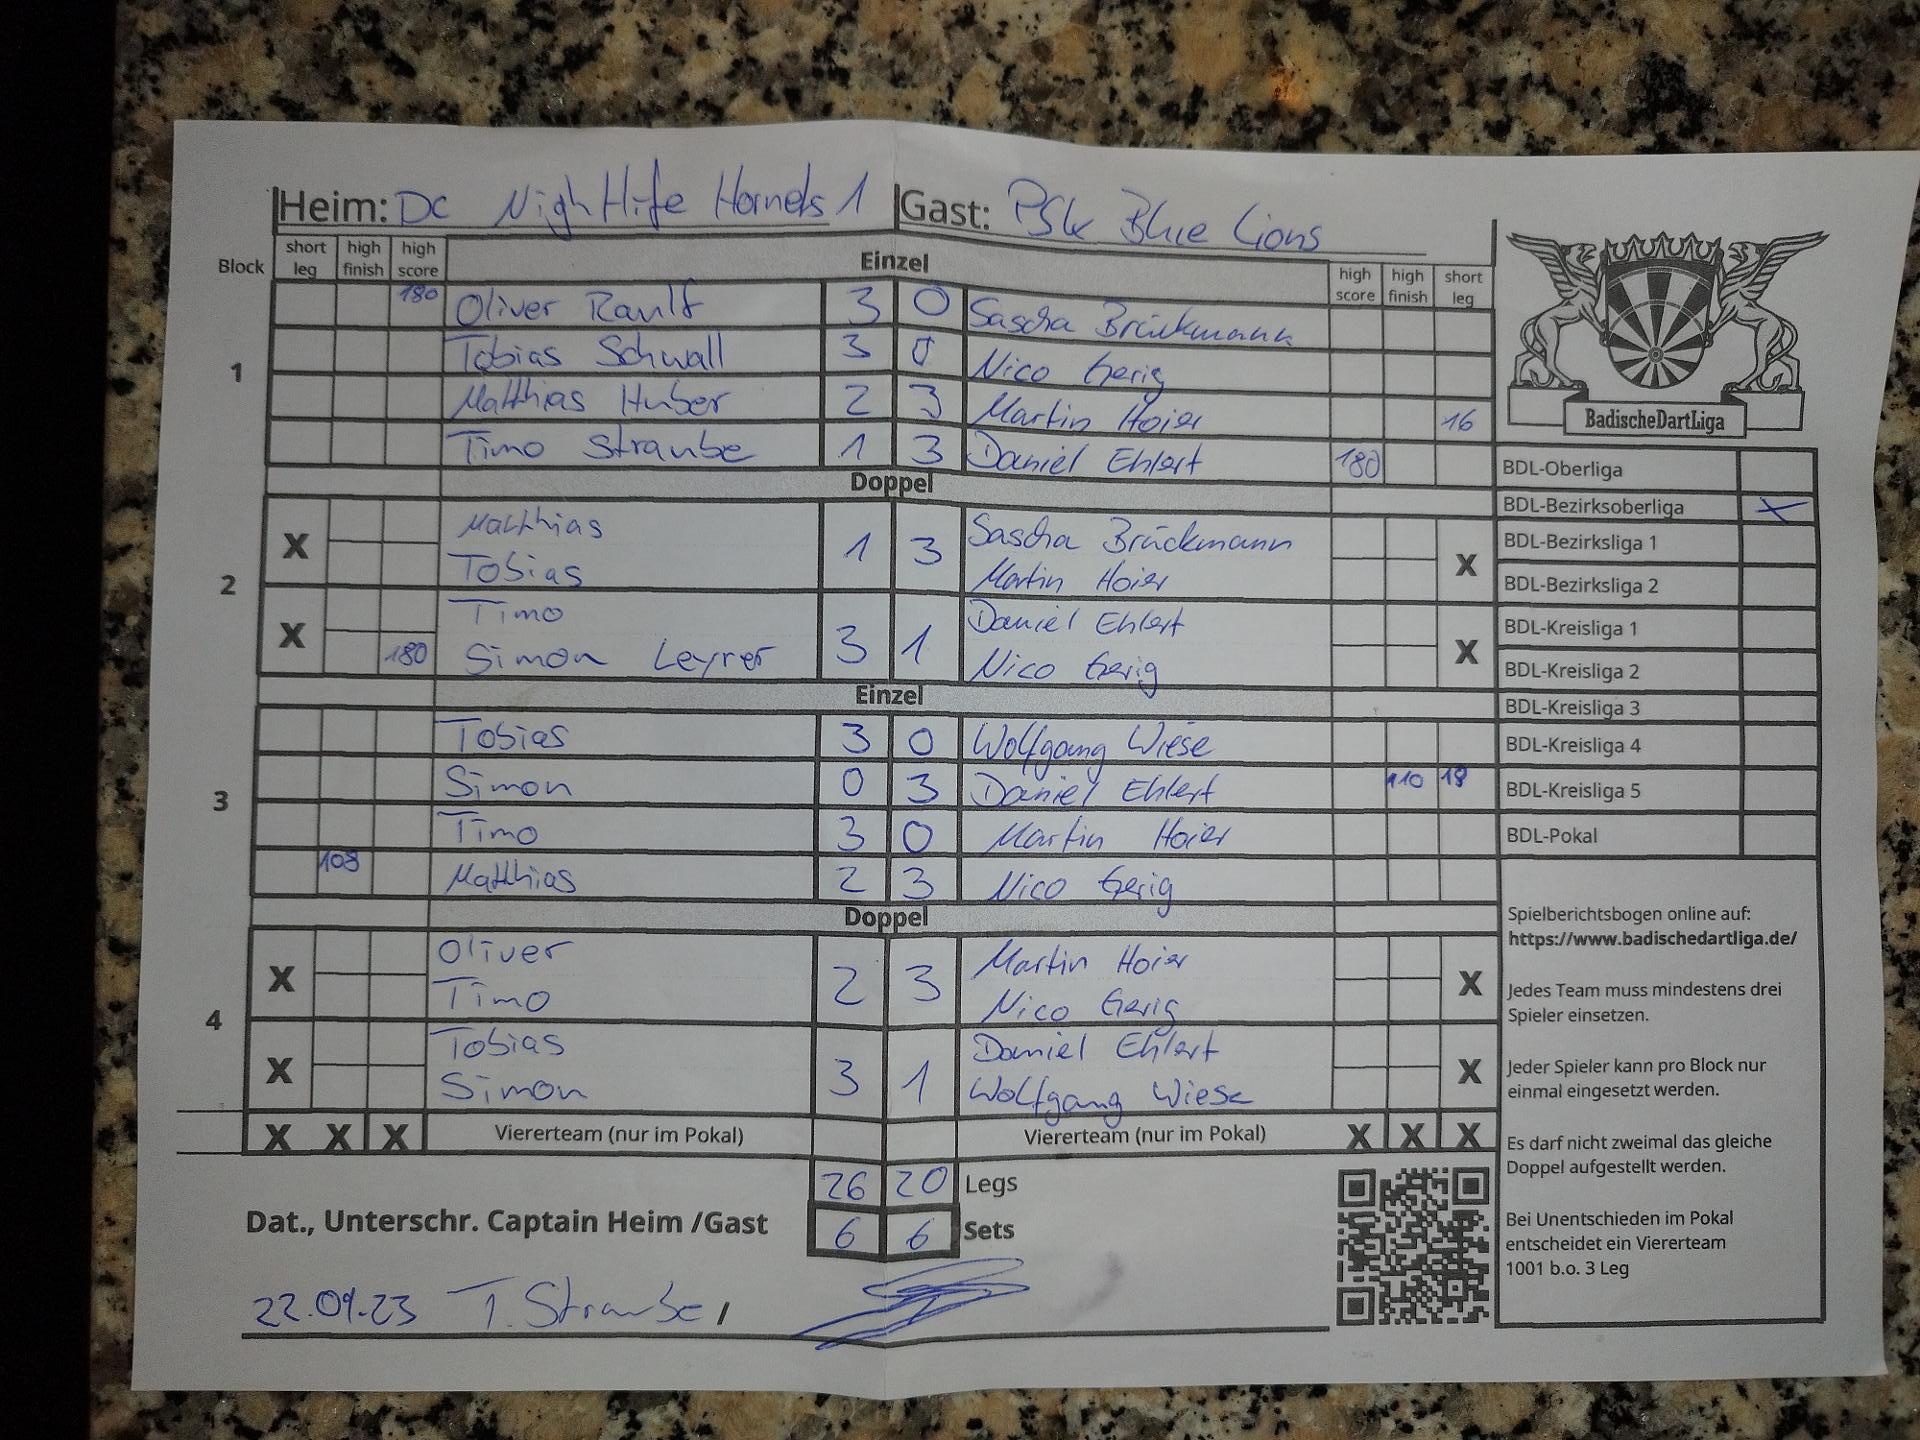 Heim: DC Nighthife Hornets 1 Gast: PSK Blue Lions
Block short leg high finish high score Einzel high score high finish short leg
180 Oliver Raulf 3 0 Sascha Brückmann
Tobias Schwall 3 0 Nico Gerig
1
Matthias Huber 2 3 Martin Hoier 16
Timo Straube 1 3 Daniel Ehlert 180
Doppel
X Matthias 1 3 Sascha Brückmann X
Tobias Martin Hoier
2
X Timo 3 1 Daniel Ehlert X
180 Simon Leyrer Nico Gerig
Einzel
Tobias 3 0 Wolfgang Wiese
Simon 0 3 Daniel Ehlert 110 18
3
Timo 3 0 Martin Hoier
108 Matthias 2 3 Nico Gerig
Doppel
X Oliver 2 3 Martin Hoier X
Timo Nico Gerig
4
X Tobias 3 1 Daniel Ehlert X
Simon Wolfgang Wiese
X X X Viererteam (nur im Pokal) Viererteam (nur im Pokal) X X X
26 20 Legs
Dat., Unterschr. Captain Heim /Gast 6 6 Sets
22.09.23 T. Straube /
BadischeDartLiga
BDL-Oberliga
BDL-Bezirksoberliga X
BDL-Bezirksliga 1
BDL-Bezirksliga 2
BDL-Kreisliga 1
BDL-Kreisliga 2
BDL-Kreisliga 3
BDL-Kreisliga 4
BDL-Kreisliga 5
BDL-Pokal
Spielberichtsbogen online auf:
https://www.badischedartliga.de/
Jedes Team muss mindestens drei
Spieler einsetzen.
Jeder Spieler kann pro Block nur
einmal eingesetzt werden.
Es darf nicht zweimal das gleiche
Doppel aufgestellt werden.
Bei Unentschieden im Pokal
entscheidet ein Viererteam
1001 b.o. 3 Leg